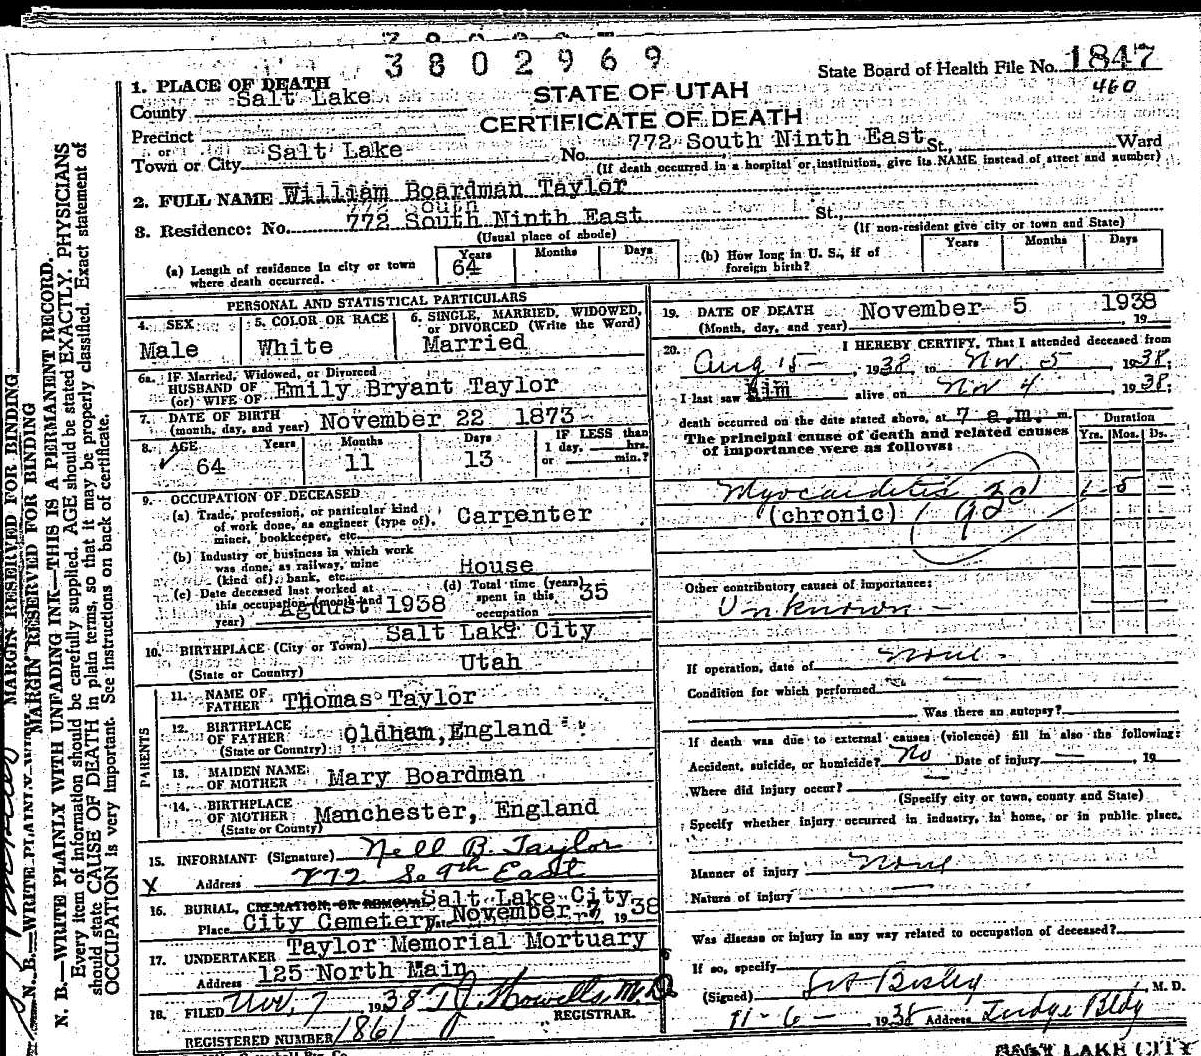 3802969
State Board of Health File No. 1847
460
STATE OF UTAH
CERTIFICATE OF DEATH
1. PLACE OF DEATH
County Salt Lake
Precinct
or
Town or City Salt Lake No. 772 South Ninth East St., Ward
(If death occurred in a hospital or institution, give its NAME instead of street and number)
2. FULL NAME William Boardman Taylor
3. Residence: No. 772 South Ninth East St.,
(Usual place of abode) (If non-resident give city or town and State)
(a) Length of residence in city or town where death occurred. Years 64 Months Days
(b) How long in U. S., if of foreign birth? Years Months Days
PERSONAL AND STATISTICAL PARTICULARS
4. SEX Male
5. COLOR OR RACE White
6. SINGLE, MARRIED, WIDOWED, or DIVORCED (Write the Word) Married
6a. IF Married, Widowed, or Divorced
HUSBAND OF
(or) WIFE OF Emily Bryant Taylor
7. DATE OF BIRTH
(month, day, and year) November 22 1873
8. AGE Years 64 Months 11 Days 13 IF LESS than 1 day, hrs. or min.?
9. OCCUPATION OF DECEASED
(a) Trade, profession, or particular kind of work done, as engineer (type of), miner, bookkeeper, etc. Carpenter
(b) Industry or business in which work was done, as railway, mine (kind of), bank, etc. House
(c) Date deceased last worked at this occupation (month and year) August 1938
(d) Total time (years) spent in this occupation 35
10. BIRTHPLACE (City or Town) Salt Lake City
(State or Country) Utah
PARENTS
11. NAME OF FATHER Thomas Taylor
12. BIRTHPLACE OF FATHER Oldham, England
(State or Country)
13. MAIDEN NAME OF MOTHER Mary Boardman
14. BIRTHPLACE OF MOTHER Manchester, England
(State or County)
15. INFORMANT (Signature) Nell B. Taylor
X Address 772 So 9th East
16. BURIAL, CREMATION, OR REMOVAL Salt Lake City
Place City Cemetery Date November 7, 1938
17. UNDERTAKER Taylor Memorial Mortuary
Address 125 North Main
18. FILED Nov. 7 1938 T J Howells M.D.
REGISTRAR.
REGISTERED NUMBER 1861
19. DATE OF DEATH November 5 1938
(Month, day, and year) 19
20. I HEREBY CERTIFY, That I attended deceased from
Aug 15 - , 1938, to Nov. 5 , 1938;
I last saw him alive on Nov 4 , 1938;
death occurred on the date stated above, at 7 a.m. m.
The principal cause of death and related causes of importance were as follows:
Duration
Yrs. Mos. Ds.
Myocarditis 1 - 5 -
(chronic) 92c
Other contributory causes of importance:
Unknown -
If operation, date of none -
Condition for which performed
Was there an autopsy?
If death was due to external causes (violence) fill in also the following:
Accident, suicide, or homicide? No Date of injury - , 19
Where did injury occur?
(Specify city or town, county and State)
Specify whether injury occurred in industry, in home, or in public place.
Manner of injury None
Nature of injury
Was disease or injury in any way related to occupation of deceased?
If so, specify
(Signed) , M. D.
11-6- 1938 Address Judge Bldg
SALT LAKE CITY
MARGIN RESERVED FOR BINDING
MARGIN RESERVED FOR BINDING
N. B.—WRITE PLAINLY WITH UNFADING INK—THIS IS A PERMANENT RECORD.
Every item of information should be carefully supplied. AGE should be stated EXACTLY. PHYSICIANS
should state CAUSE OF DEATH in plain terms, so that it may be properly classified. Exact statement of
OCCUPATION is very important. See instructions on back of certificate.